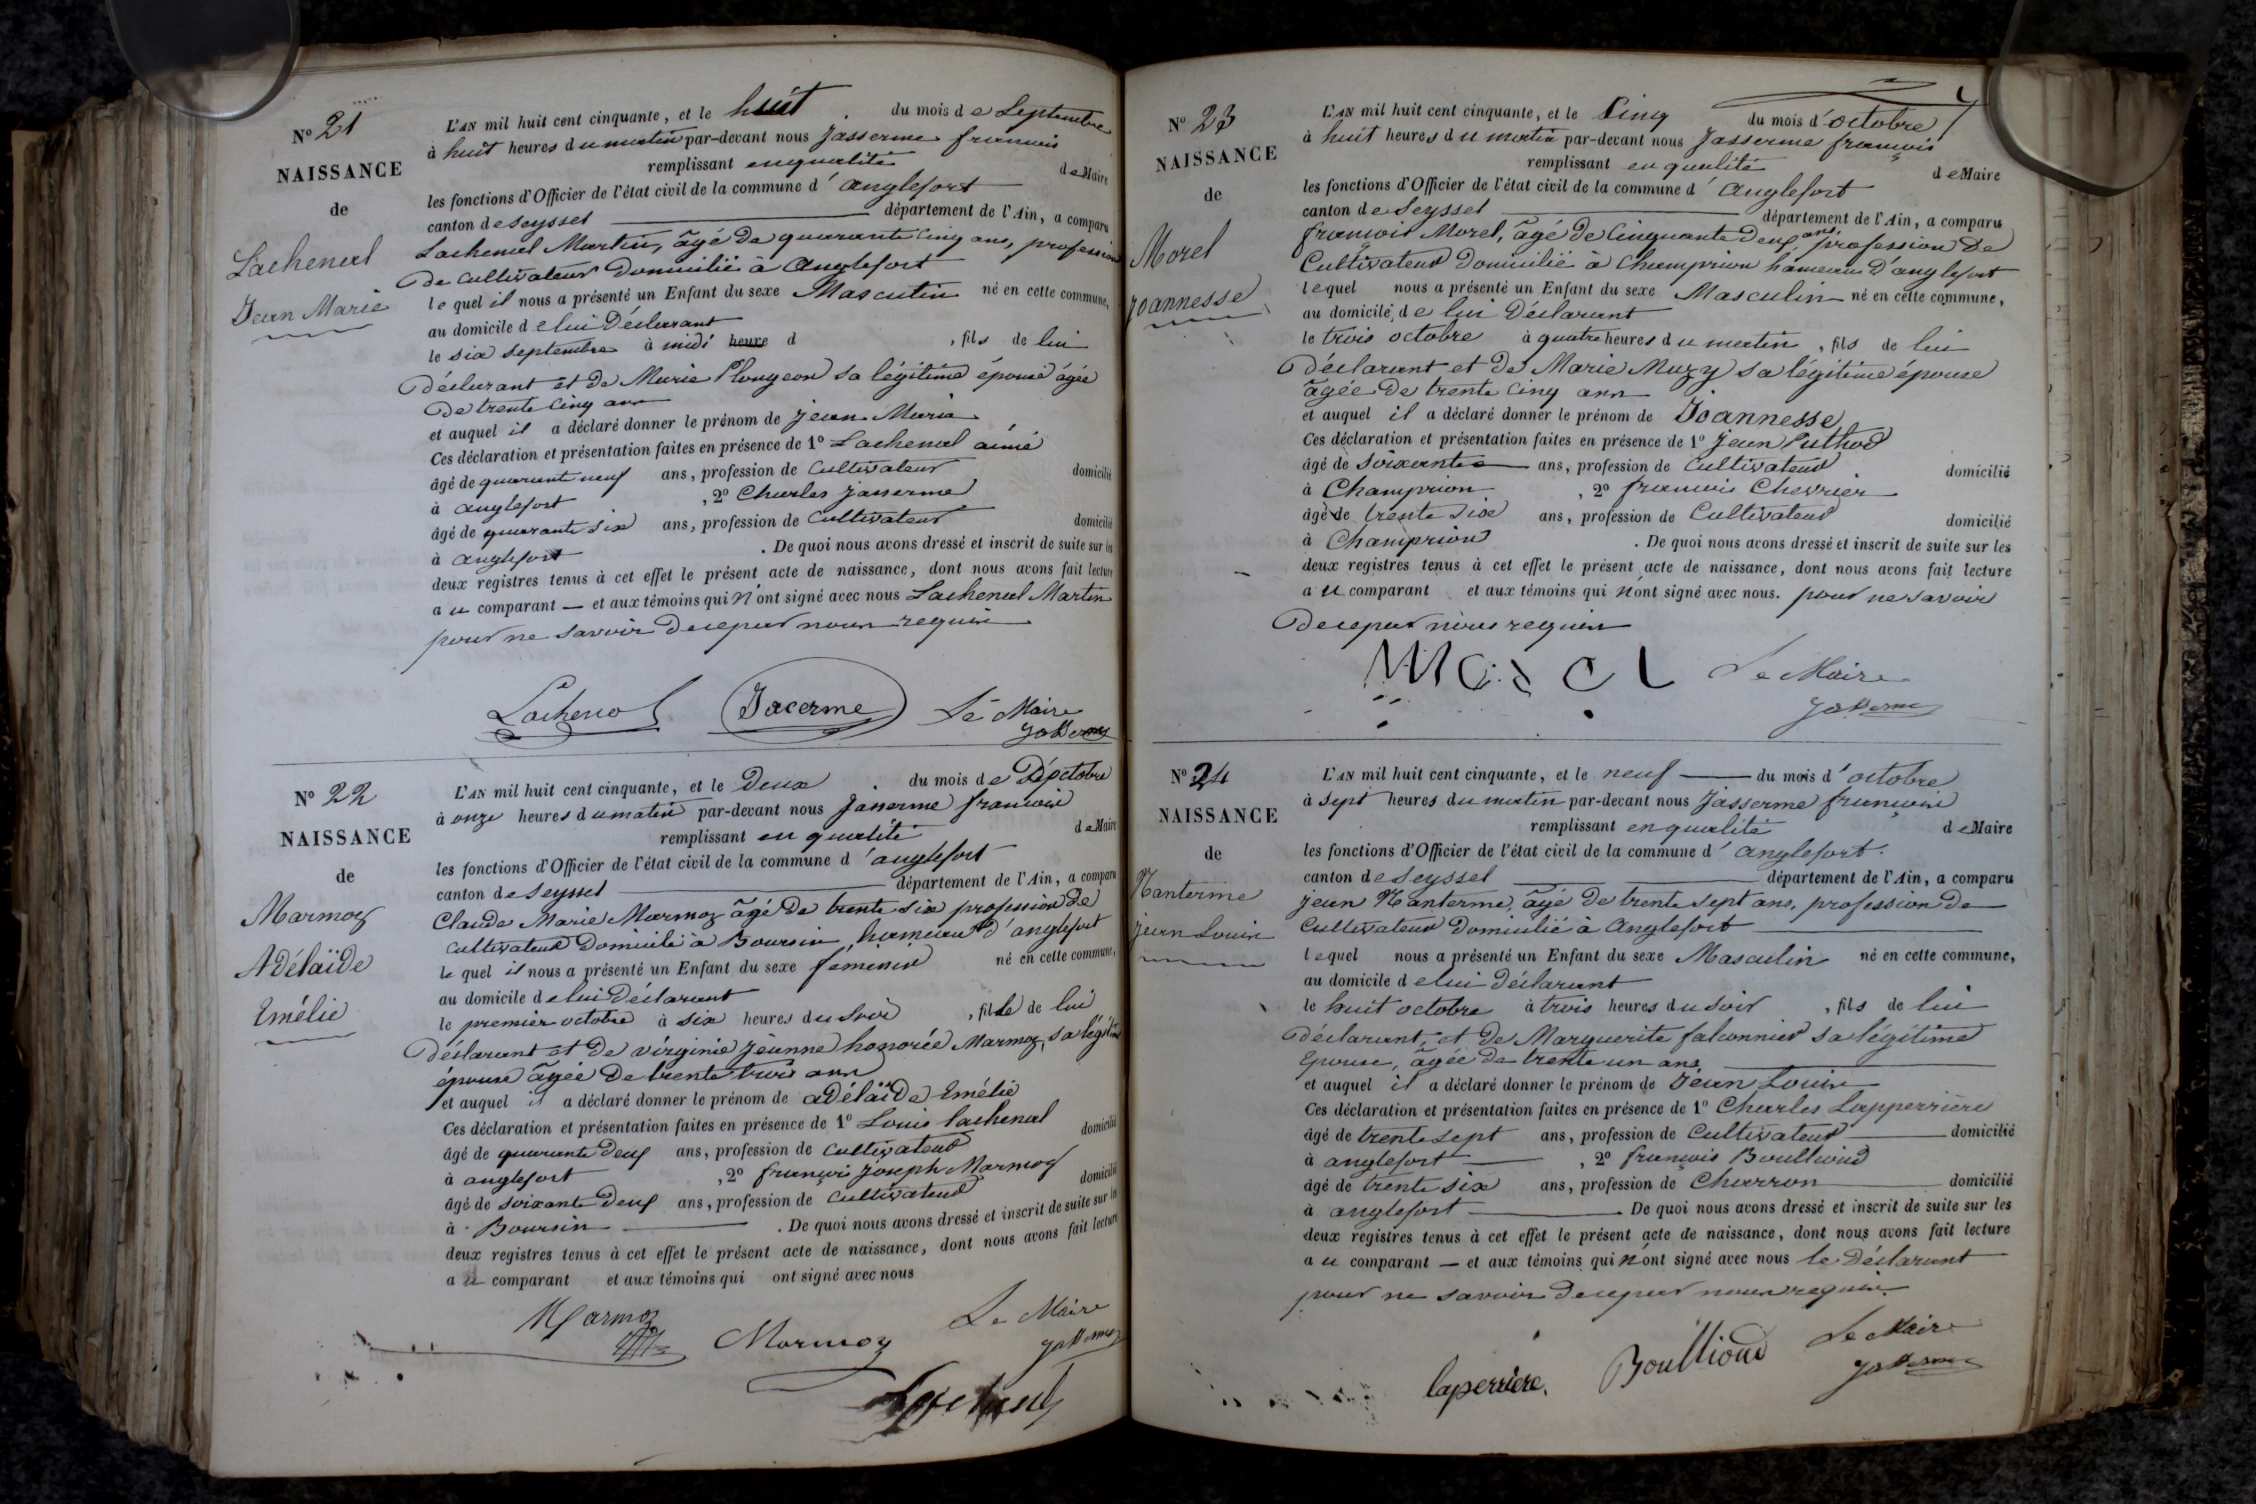 N° 21
NAISSANCE
de
Lachenal
Jean Marie
L'AN mil huit cent cinquante, et le huit du mois de Septembre
à huit heures du matin par-devant nous Jasserme francois
remplissant en qualité de Maire
les fonctions d'Officier de l'état civil de la commune d'anglefort
canton de Seyssel département de l'Ain, a comparu
Lachenal Martin, âgé de quarante cinq ans, profession
de cultivateur domicilié à Anglefort
lequel il nous a présenté un Enfant du sexe Masculin né en cette commune,
au domicile de lui Déclarant
le six septembre à midi heure d , fils de lui
Déclarant et de Marie Plongeon sa légitime épouse âgée
de trente cinq ans
et auquel il a déclaré donner le prénom de jean Marie
Ces déclaration et présentation faites en présence de 1° Lachenal aimé
âgé de quarante neuf ans, profession de cultivateur domicilié
à anglefort , 2° Charles Jasserme
âgé de quarante six ans, profession de Cultivateur domicilié
à anglefort . De quoi nous avons dressé et inscrit de suite sur les
deux registres tenus à cet effet le présent acte de naissance, dont nous avons fait lecture
au comparant — et aux témoins qui n'ont signé avec nous Lachenal Martin
pour ne savoir de ce par nous requis
Lachenal Jacerme Le Maire
Jasserme
N° 22
NAISSANCE
de
Marmoz
Adélaïde
Emélie
L'AN mil huit cent cinquante, et le Deux du mois de octobre
à onze heures du matin par-devant nous Jasserme francois
remplissant en qualité de Maire
les fonctions d'Officier de l'état civil de la commune d'anglefort
canton de Seyssel département de l'Ain, a comparu
Claude Marie Marmoz âgé de trente six profession de
cultivateur domicilié à Boursin, hameau d'anglefort
lequel il nous a présenté un Enfant du sexe femenin né en cette commune,
au domicile de lui Déclarant
le premier octobre à six heures du soir , fille de lui
Déclarant et de virginie jeanne honorée Marmoz, sa légitime
épouse âgée de trente trois ans
et auquel il a déclaré donner le prénom de adélaïde Emélie
Ces déclaration et présentation faites en présence de 1° Louis lachenal
âgé de quarante deux ans, profession de cultivateur domicilié
à anglefort , 2° françois joseph Marmoz
âgé de soixante deux ans, profession de cultivateur domicilié
à Boursin . De quoi nous avons dressé et inscrit de suite sur les
deux registres tenus à cet effet le présent acte de naissance, dont nous avons fait lecture
au comparant et aux témoins qui ont signé avec nous
Marmoz Marmoz Le Maire
Jasserme
N° 23
NAISSANCE
de
Morel
Joannesse
L'AN mil huit cent cinquante, et le Cinq du mois d'octobre
à huit heures du matin par-devant nous Jasserme françois
remplissant en qualité de Maire
les fonctions d'Officier de l'état civil de la commune d'anglefort
canton de Seyssel département de l'Ain, a comparu
françois Morel, âgé de Cinquante deux ans, profession de
Cultivateur domicilié à Champrion hameau d'anglefort
lequel nous a présenté un Enfant du sexe Masculin né en cette commune,
au domicile de lui Déclarant
le trois octobre à quatre heures du matin , fils de lui
Déclarant et de Marie Muzy sa légitime épouse
âgée de trente cinq ans
et auquel il a déclaré donner le prénom de Joannesse
Ces déclaration et présentation faites en présence de 1° jean Puthod
âgé de soixante ans, profession de cultivateur domicilié
à Champrion , 2° francois Chevrier
âgé de trente six ans, profession de Cultivateur domicilié
à Champrion . De quoi nous avons dressé et inscrit de suite sur les
deux registres tenus à cet effet le présent acte de naissance, dont nous avons fait lecture
au comparant et aux témoins qui n'ont signé avec nous. pour ne savoir
de ce par nous requis
Morel Le Maire
Jasserme
N° 24
NAISSANCE
de
Nanterme
jean Louis
L'AN mil huit cent cinquante, et le neuf du mois d'octobre
à sept heures du matin par-devant nous Jasserme françois
remplissant en qualité de Maire
les fonctions d'Officier de l'état civil de la commune d'anglefort
canton de Seyssel département de l'Ain, a comparu
jean Nanterme, âgé de trente sept ans, profession de
Cultivateur domicilié à Anglefort
lequel nous a présenté un Enfant du sexe Masculin né en cette commune,
au domicile de lui Déclarant
le huit octobre à trois heures du soir , fils de lui
déclarant, et de Marguerite falconnier sa légitime
Epouse, âgée de trente un ans
et auquel il a déclaré donner le prénom de Jean Louis
Ces déclaration et présentation faites en présence de 1° Charles Lapperriere
âgé de trente sept ans, profession de Cultivateur domicilié
à anglefort , 2° françois Boullioud
âgé de trente six ans, profession de Charron domicilié
à anglefort De quoi nous avons dressé et inscrit de suite sur les
deux registres tenus à cet effet le présent acte de naissance, dont nous avons fait lecture
au comparant — et aux témoins qui n'ont signé avec nous le Déclarant
pour ne savoir de ce par nous requis.
laperriere. Boullioud Le Maire
Jasserme